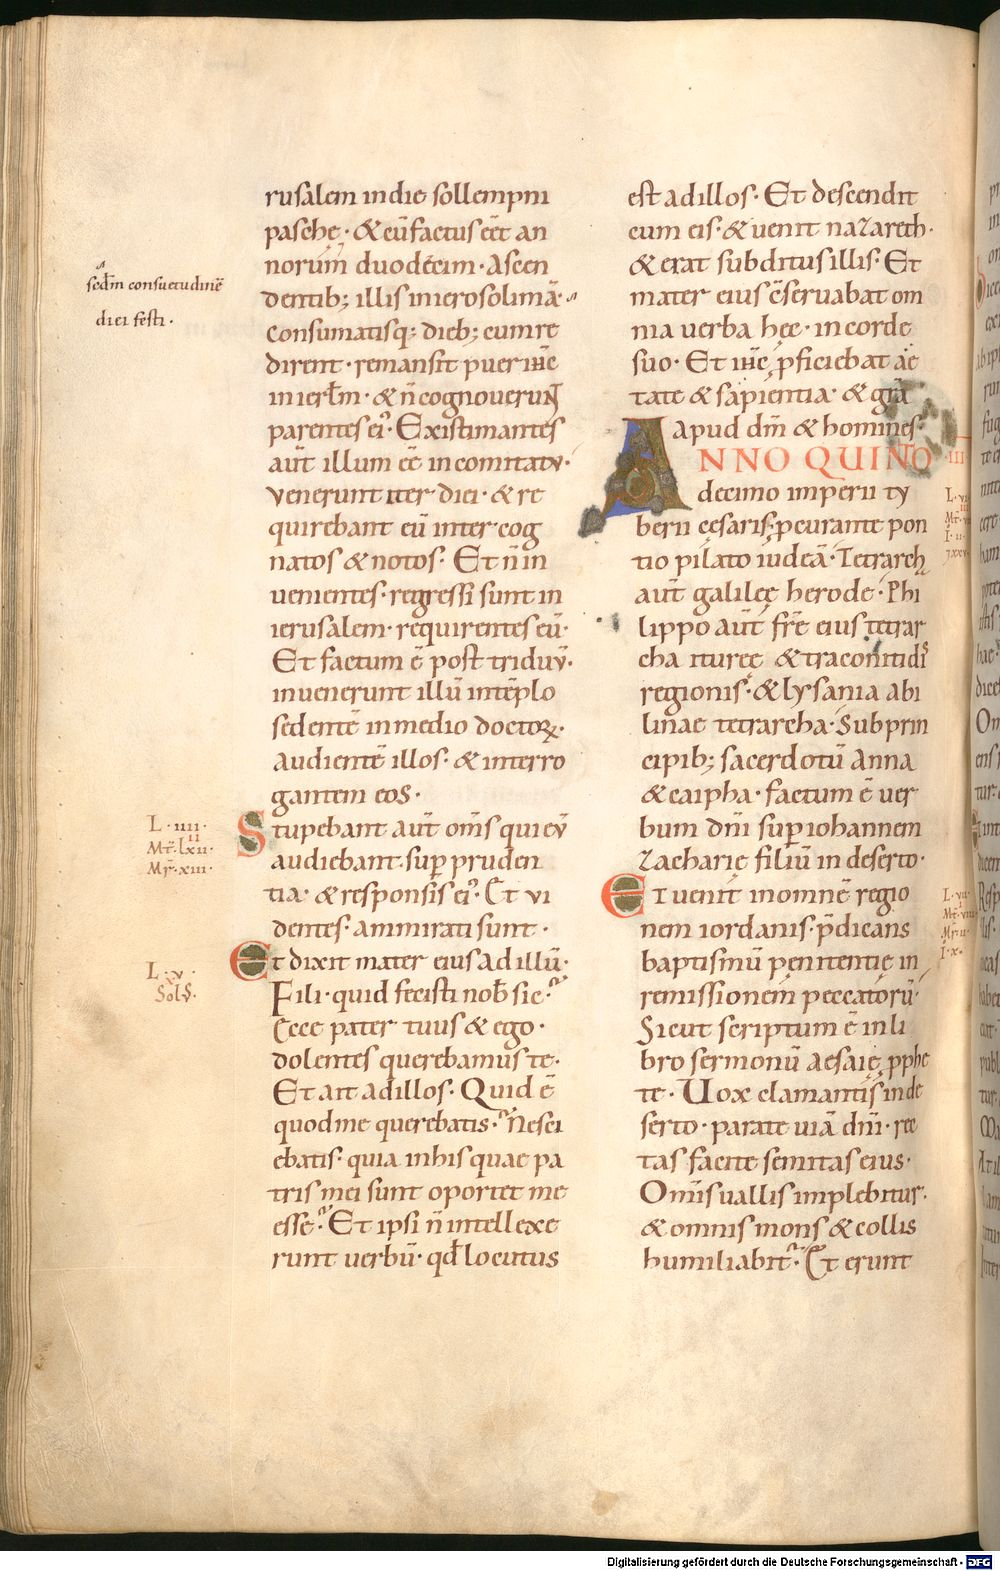 rusalem in die sollempni
paschę · & cū factus eēt an
norum duodecim · Ascen
dentib; illis in ierosolimā ·
consumatisq; dieb; cum re
dirent · remansit puer ihc̄
in ierłm · & n̄ cognoverunt
parentes ei᾿ · Existimantes
aūt illum eē in comitatu ·
venerunt iter diei · & re
quirebant eū inter cog
natos & notos · Et n̄ in
uenientes · regressi sunt in
ierusalem · requirentes eū ·
Et factum ē post triduū ·
inuenerunt illū in tēplo
sedentē in medio doctoꝝ ·
audientē illos · & interro
gantem eos ·
Stupebant aūt om̄s qui eū
audiebant · suꝑ pruden
tia · & responsis ei᾿ · Et vi
dentes · ammirati sunt ·
Et dixit mater eius ad illū ·
Fili · quid fecisti nob̄ sic ·
Ecce pater tuus & ego ·
dolentes querebamus te ·
Et ait ad illos · Quid ē
quod me querebatis · Nesci
ebatis · quia in his quae pa
tris mei sunt oportet me
esse · Et ipsi n̄ intellexe
runt verbū · qđ locutus
sed̄m consuetudinē
diei festi ·
L · iiii ·
II
Mt̄ · lxii ·
Mr̄ · xiii ·
L · v ·
Sol᾿ ·
est ad illos · Et descendit
cum eis · & uenit nazareth ·
& erat subditus illis · Et
mater eius c̄seruabat om
nia verba hęc · in corde
suo · Et ihc̄ ꝓficiebat aę
tate & sapientia · & gr̄a
apud dm̄ & homines ·
ANNO QUINTO
decimo imperii ty
berii cęsaris · ꝓcurante pon
tio pilato iudeā · Tetrarch
aūt galileę herode · Phi
lippo aūt fr̄e eius tetrar
cha itureę & traconitidis
regionis · & lysania abi
linae tetrarcha · Sub prin
cipib; sacerdotū anna
& caipha · factum ē ver
bum dn̄i suꝑ iohannem
zacharię filiū in deserto ·
Et uenit in omnē regio
nem iordanis · p̄dicans
baptismū penitentię in
remissionem peccatorū ·
Sicut scriptum ē in li
bro sermonū aesaię ꝓphe
te · Uox clamantis in de
serto · parate uiā dn̄i · rec
tas facite semitas eius ·
Om̄is uallis implebitur ·
& omnis mons & collis
humiliabit᾿ · Et erunt
III
Digitalisierung gefördert durch die Deutsche Forschungsgemeinschaft - DFG